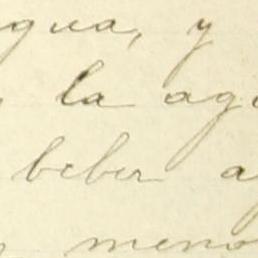 agua, y
la ag
beber a
meno